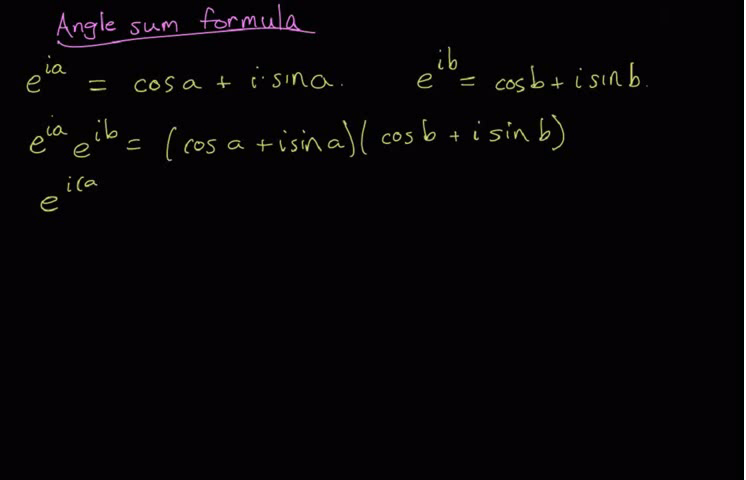 Angle sum formula
e^{ia} = cos a + i · sin a. e^{ib} = cos b + i sin b.
e^{ia} e^{ib} = (cos a + i sin a)(cos b + i sin b)
e^{i(a